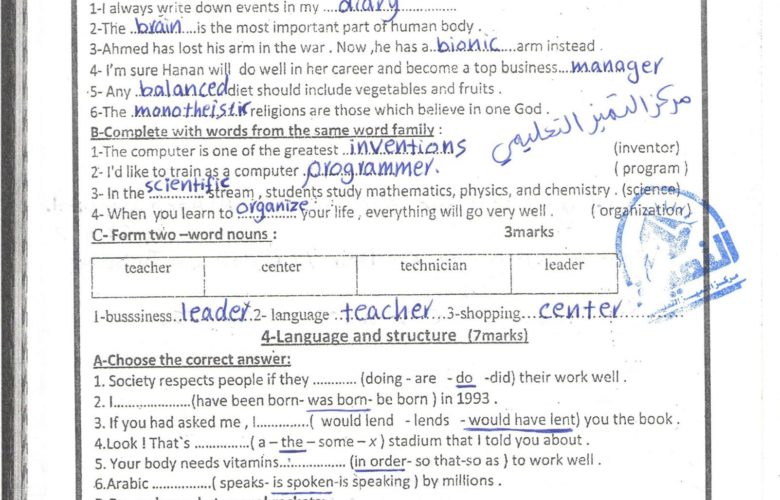 1-I always write down events in my ....diary..................
2-The ..brain....is the most important part of human body .
3-Ahmed has lost his arm in the war . Now ,he has a..bionic....arm instead .
4- I'm sure Hanan will do well in her career and become a top business...manager
5- Any .balanced diet should include vegetables and fruits .
6-The .monotheistic religions are those which believe in one God .
مركز التميز التعليمي
B-Complete with words from the same word family :
1-The computer is one of the greatest ..inventions (inventor)
2- I'd like to train as a computer .programmer. ( program )
3- In the scientific stream , students study mathematics, physics, and chemistry . (science)
4- When you learn to organize your life , everything will go very well . ( organization )
C- Form two –word nouns : 3marks
teacher center technician leader
1-busssiness..leader.2- language .teacher...3-shopping...center
4-Language and structure (7marks)
A-Choose the correct answer:
1. Society respects people if they ............ (doing - are - do -did) their work well .
2. I.....................(have been born- was born- be born ) in 1993 .
3. If you had asked me , I..............( would lend - lends - would have lent) you the book .
4.Look ! That`s ..............( a – the – some – x ) stadium that I told you about .
5. Your body needs vitamins................ (in order- so that-so as ) to work well .
6.Arabic ................( speaks- is spoken-is speaking ) by millions .